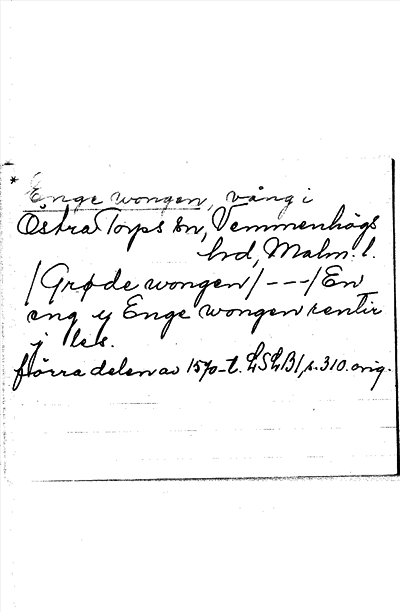 * Enge wongen, vång i
Östra Torps sn, Vemmenhögs
hd, Malm. l.
/Grøde wongen/ - - - / En
eng y Enge wongen rentir
j les.
förra delen av 1570-t. LSLB1, s. 310. orig.